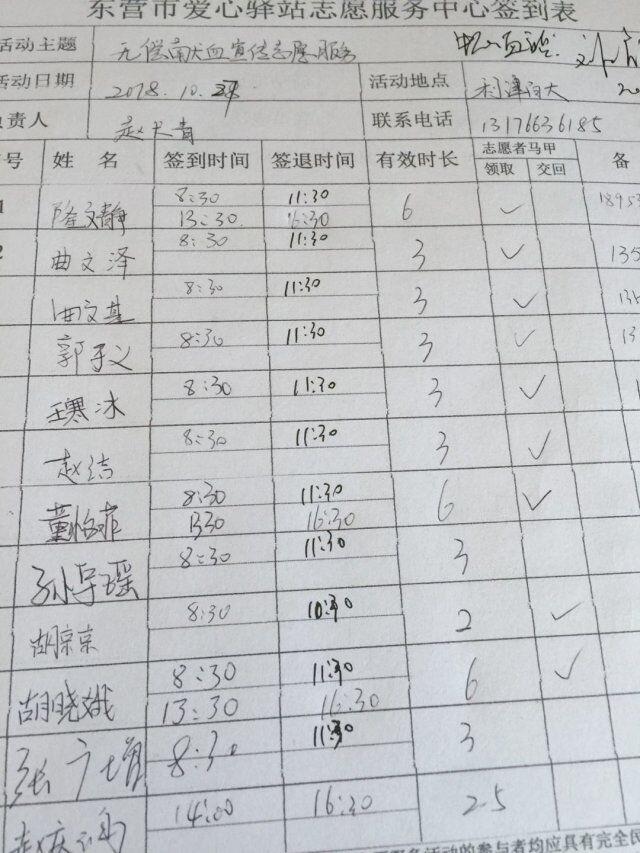 东营市爱心驿站志愿服务中心签到表
活动主题 无偿献血宣传志愿服务
活动日期 2018.10. 活动地点 利津
负责人 赵 青 联系电话 13176636185
号 姓 名 签到时间 签退时间 有效时长 志愿者马甲 备
领取 交回
1 隆文静 8:30 11:30 6 ✓ 18953
13:30 16:30
2 曲文泽 8:30 11:30 3 ✓ 135
曲文基 8:30 11:30 3 ✓
郭子义 8:30 11:30 3 ✓ 13
王寒冰 8:30 11:30 3 ✓
赵洁 8:30 11:30 3 ✓
董怡菲 8:30 11:30 6 ✓
1330 16:30
孙 瑶 8:30 11:30 3
胡京京 8:30 10:30 2 ✓
胡晓娥 8:30 11:30 6 ✓
13:30 16:30
张广增 8:30 11:30 3
赵 14:00 16:30 2.5
服务活动的参与者均应具有完全民